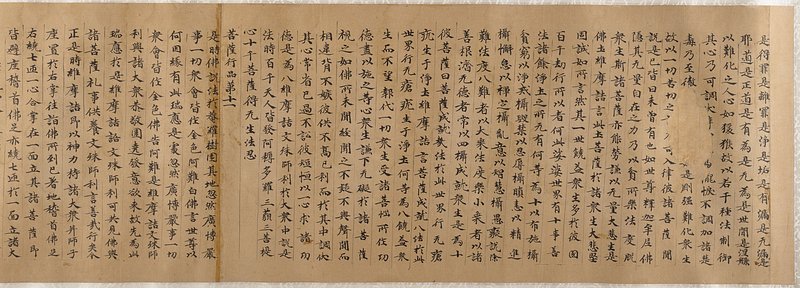 是得罪是離罪是淨是垢是有漏是无漏是
耶道是正道是有為是无為是世間是涅槃
以難化之人心如猨猴故以若干種法制御
其心乃可調伏 悷不調加諸楚
毒乃至徹 是剛強難化衆生
故以一切苦切之 可入律彼諸菩薩聞
說是已皆曰未曾有也如世尊釋迦牟尼佛
隱其无量自在之力乃以貧所樂法度脫
衆生斯諸菩薩亦能勞謙以无量大悲生是
佛土維摩詰言此土菩薩於諸衆生大悲堅
固誠如所言然其一世饒益衆生多於彼國
百千劫行所以者何此娑婆世界有十事善
法諸餘淨土之所无有何等為十以布施攝
貧窮以淨戒攝毀禁以忍辱攝瞋恚以精進
攝懈怠以禪定攝亂意以智慧攝愚癡說除
難法度八難者以大乘法度樂小乘者以諸
善根濟无德者常以四攝成就衆生是為十
彼菩薩曰菩薩成就幾法於此世界行无瘡
疣生于淨土維摩詰言菩薩成就八法於此
世界行无瘡疣生于淨土何等為八饒益衆
生而不望報代一切衆生受諸苦惱所作功
德盡以施之等心衆生謙下无礙於諸菩薩
視之如佛所未聞經聞之不疑不與聲聞而
相違背不嫉彼供不高己利而於其中調伏
其心常省己過不訟彼短恒以一心求諸功
德是為八維摩詰文殊師利於大衆中說是
法時百千天人皆發阿耨多羅三藐三菩提
心十千菩薩得无生法忍
菩薩行品第十一
是時佛說法於菴羅樹園其地忽然廣博嚴
事一切衆會皆作金色阿難白佛言世尊以
何因緣有此瑞應是處忽然廣博嚴事一切
衆會皆作金色佛告阿難是維摩詰文殊師
利與諸大衆恭敬圍遶發意欲來故先為此
瑞應於是維摩詰語文殊師利可共見佛與
諸菩薩礼事供養文殊師利言善哉行矣今
正是時維摩詰即以神力持諸大衆并師子
座置於右掌往詣佛所到已著地稽首佛足
右繞七匝一心合掌在一面立其諸菩薩即
皆避座稽首佛足亦繞七匝於一面立諸大